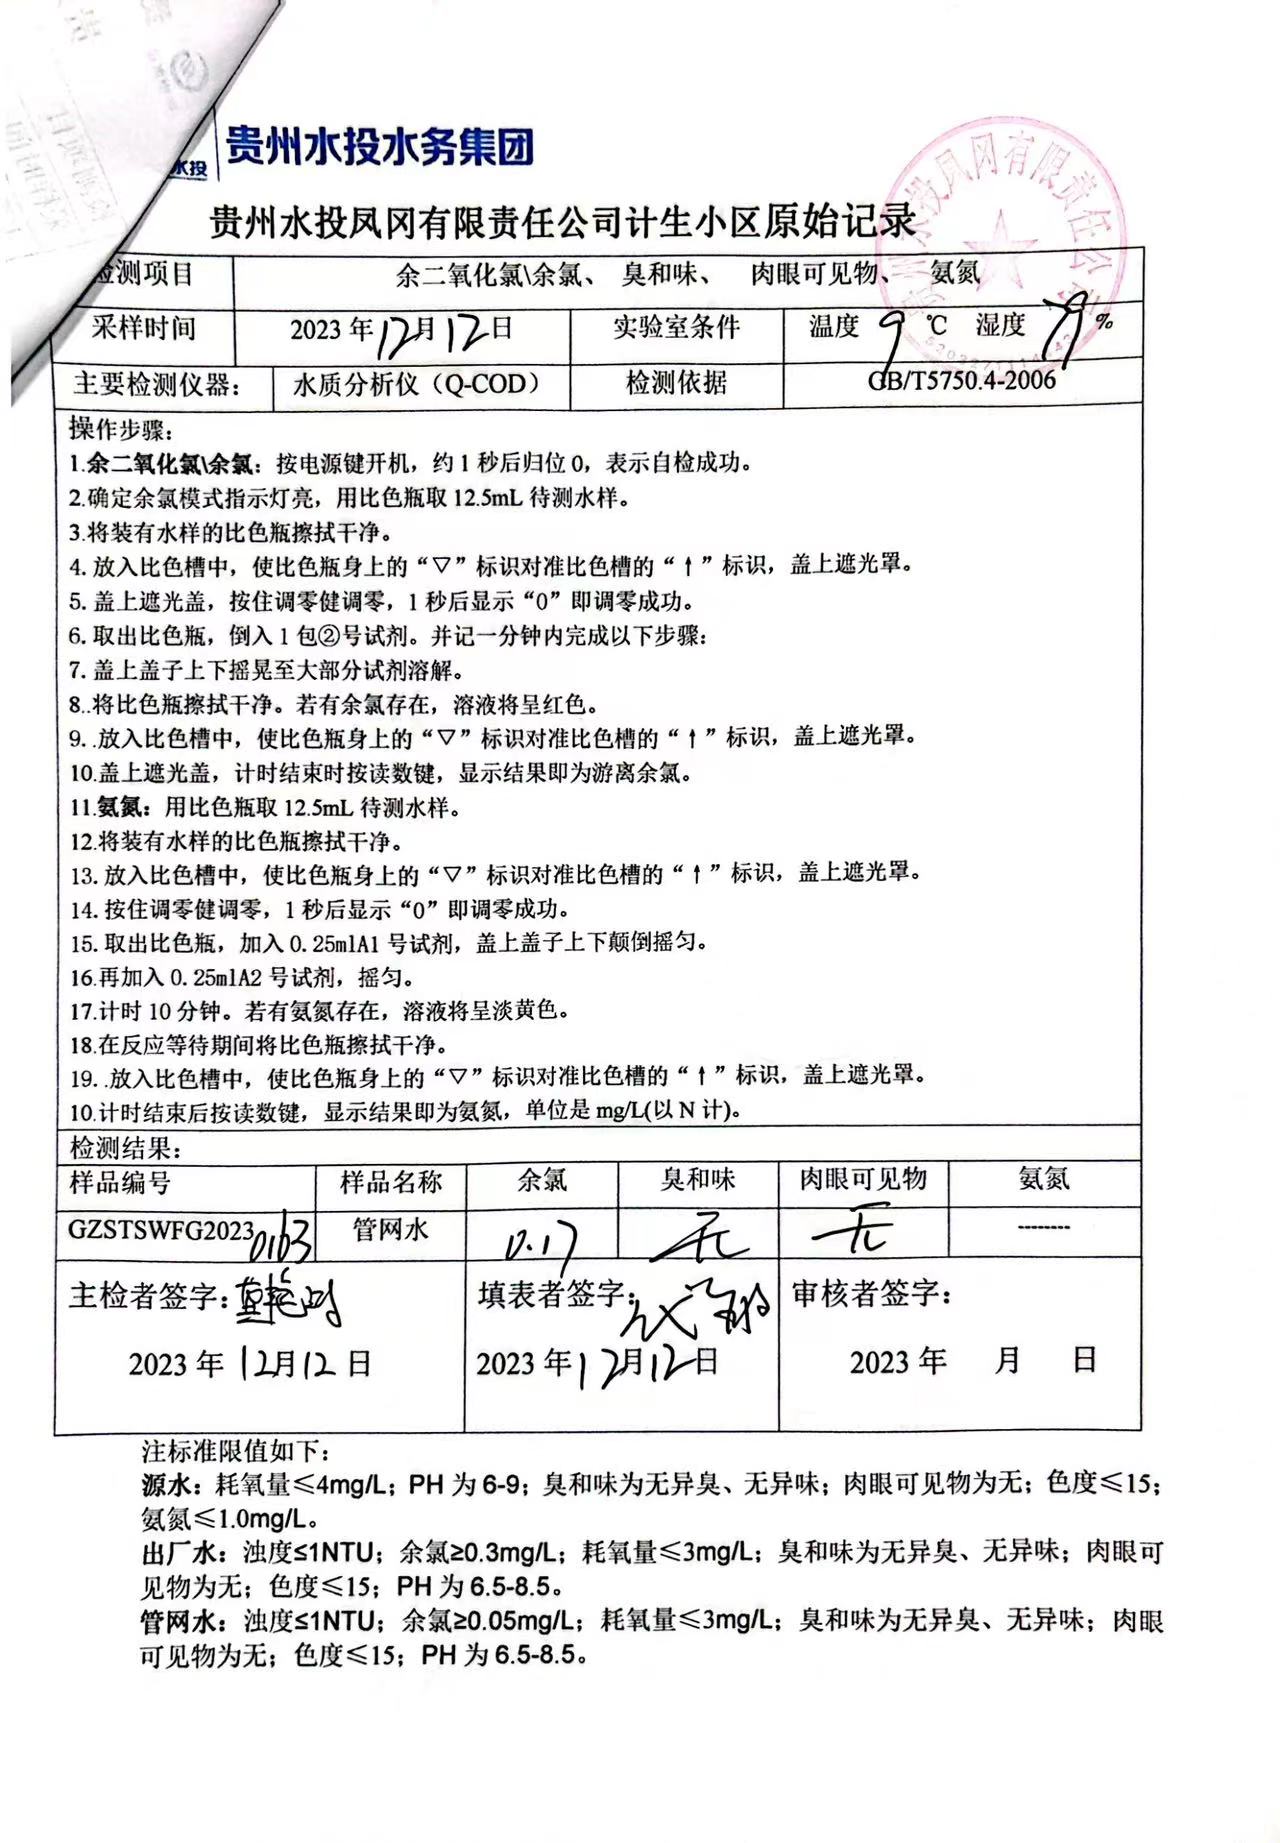 水投
贵州水投水务集团
贵州水投凤冈有限责任公司计生小区原始记录
检测项目 余二氧化氯\余氯、 臭和味、 肉眼可见物、 氨氮
采样时间 2023 年 12 月 12 日 实验室条件 温度 9 ℃ 湿度 79 %
主要检测仪器： 水质分析仪（Q-COD） 检测依据 GB/T5750.4-2006
操作步骤：
1.余二氧化氯\余氯：按电源键开机，约 1 秒后归位 0，表示自检成功。
2.确定余氯模式指示灯亮，用比色瓶取 12.5mL 待测水样。
3.将装有水样的比色瓶擦拭干净。
4. 放入比色槽中，使比色瓶身上的“▽”标识对准比色槽的“↑”标识，盖上遮光罩。
5. 盖上遮光盖，按住调零健调零，1 秒后显示“0”即调零成功。
6. 取出比色瓶，倒入 1 包②号试剂。并记一分钟内完成以下步骤：
7. 盖上盖子上下摇晃至大部分试剂溶解。
8..将比色瓶擦拭干净。若有余氯存在，溶液将呈红色。
9. .放入比色槽中，使比色瓶身上的“▽”标识对准比色槽的“↑”标识，盖上遮光罩。
10.盖上遮光盖，计时结束时按读数键，显示结果即为游离余氯。
11.氨氮：用比色瓶取 12.5mL 待测水样。
12.将装有水样的比色瓶擦拭干净。
13. 放入比色槽中，使比色瓶身上的“▽”标识对准比色槽的“↑”标识，盖上遮光罩。
14. 按住调零健调零，1 秒后显示“0”即调零成功。
15. 取出比色瓶，加入 0.25mlA1 号试剂，盖上盖子上下颠倒摇匀。
16.再加入 0.25mlA2 号试剂，摇匀。
17.计时 10 分钟。若有氨氮存在，溶液将呈淡黄色。
18.在反应等待期间将比色瓶擦拭干净。
19. .放入比色槽中，使比色瓶身上的“▽”标识对准比色槽的“↑”标识，盖上遮光罩。
10.计时结束后按读数键，显示结果即为氨氮，单位是 mg/L(以 N 计)。
检测结果：
样品编号 样品名称 余氯 臭和味 肉眼可见物 氨氮
GZSTSWFG20230163 管网水 0.17 无 无 --------
主检者签字： 填表者签字： 审核者签字：
2023 年 12 月 12 日 2023 年 12 月 12 日 2023 年 月 日
注标准限值如下：
源水：耗氧量≤4mg/L；PH 为 6-9；臭和味为无异臭、无异味；肉眼可见物为无；色度≤15；
氨氮≤1.0mg/L。
出厂水：浊度≤1NTU；余氯≥0.3mg/L；耗氧量≤3mg/L；臭和味为无异臭、无异味；肉眼可
见物为无；色度≤15；PH 为 6.5-8.5。
管网水：浊度≤1NTU；余氯≥0.05mg/L；耗氧量≤3mg/L；臭和味为无异臭、无异味；肉眼
可见物为无；色度≤15；PH 为 6.5-8.5。